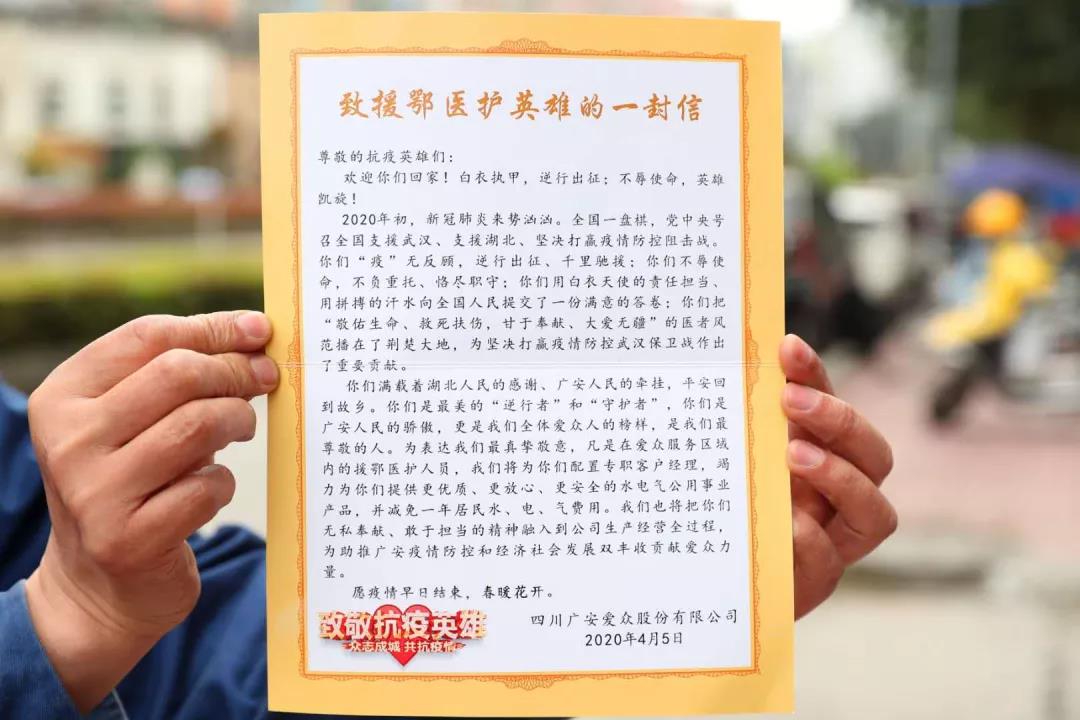 致援鄂医护英雄的一封信
尊敬的抗疫英雄们：
欢迎你们回家！白衣执甲，逆行出征；不辱使命，英雄
凯旋！
2020年初，新冠肺炎来势汹汹。全国一盘棋，党中央号
召全国支援武汉、支援湖北、坚决打赢疫情防控阻击战。
你们“疫”无反顾，逆行出征、千里驰援；你们不辱使
命，不负重托、恪尽职守；你们用白衣天使的责任担当、
用拼搏的汗水向全国人民提交了一份满意的答卷；你们把
“敬佑生命、救死扶伤，甘于奉献、大爱无疆”的医者风
范播在了荆楚大地，为坚决打赢疫情防控武汉保卫战作出
了重要贡献。
你们满载着湖北人民的感谢、广安人民的牵挂，平安回
到故乡。你们是最美的“逆行者”和“守护者”，你们是
广安人民的骄傲，更是我们全体爱众人的榜样，是我们最
尊敬的人。为表达我们最真挚敬意，凡是在爱众服务区域
内的援鄂医护人员，我们将为你们配置专职客户经理，竭
力为你们提供更优质、更放心、更安全的水电气公用事业
产品，并减免一年居民水、电、气费用。我们也将把你们
无私奉献、敢于担当的精神融入到公司生产经营全过程，
为助推广安疫情防控和经济社会发展双丰收贡献爱众力
量。
愿疫情早日结束，春暖花开。
致敬抗疫英雄
众志成城 共抗疫情
四川广安爱众股份有限公司
2020年4月5日